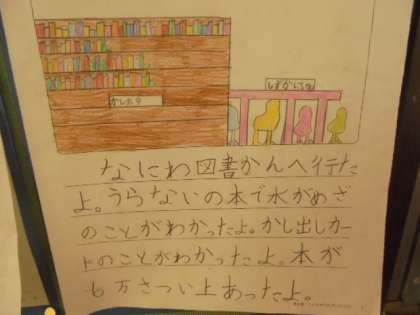 しずかにしてね
なにわ図書かんへ行た
よ。うらないの本で水がめざ
のことがわかったよ。かし出しカー
トのことがわかったよ。本が
6万さつい上あったよ。